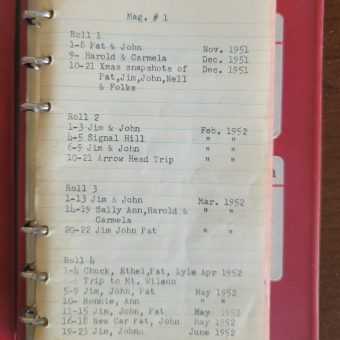 Mag. # 1
Roll 1
1-8 Pat & John Nov. 1951
9- Harold & Carmela Dec. 1951
10-21 Xmas snapshots of Dec. 1951
Pat,Jim,John,Nell
& Folks
Roll 2
1-3 Jim & John Feb. 1952
4-5 Signal Hill " "
6-9 Jim & John " "
10-21 Arrow Head Trip " "
Roll 3
1-13 Jim & John Mar. 1952
14-19 Sally Ann,Harold & " "
Carmela
20-22 Jim John Pat " "
Roll 4
1-4 Chuck, Ethel,Pat, Lyle Apr 1952
Trip to Mt. Wilson
5-9 Jim, John, Pat May 1952
10- Ronnie, Ann " "
11-15 Jim, John, Pat May 1952
16-18 New Car Pat, John May 1952
19-23 Jim, John June 1952